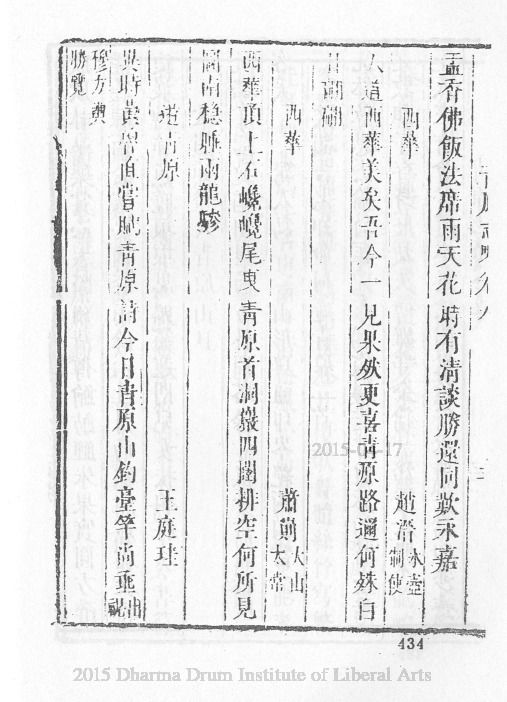 盂香佛飯法席雨天花時有清談勝還同歎永嘉
西華 趙溍 冰壺制使
人道西華美矣吾今一見果然更喜青原路邇何殊白
西華 蕭崱 大山太常
西華頂上石巉巉尾曳青原首洞巖四闥排空何所見
圖南穩睡兩龍驂
遊青原 王庭珪
異時黃習直嘗賦青原詩今日青原山釣臺竿尚垂 祝
穆方輿勝覽
434
2015-04-17
2015 Dharma Drum Institute of Liberal Arts